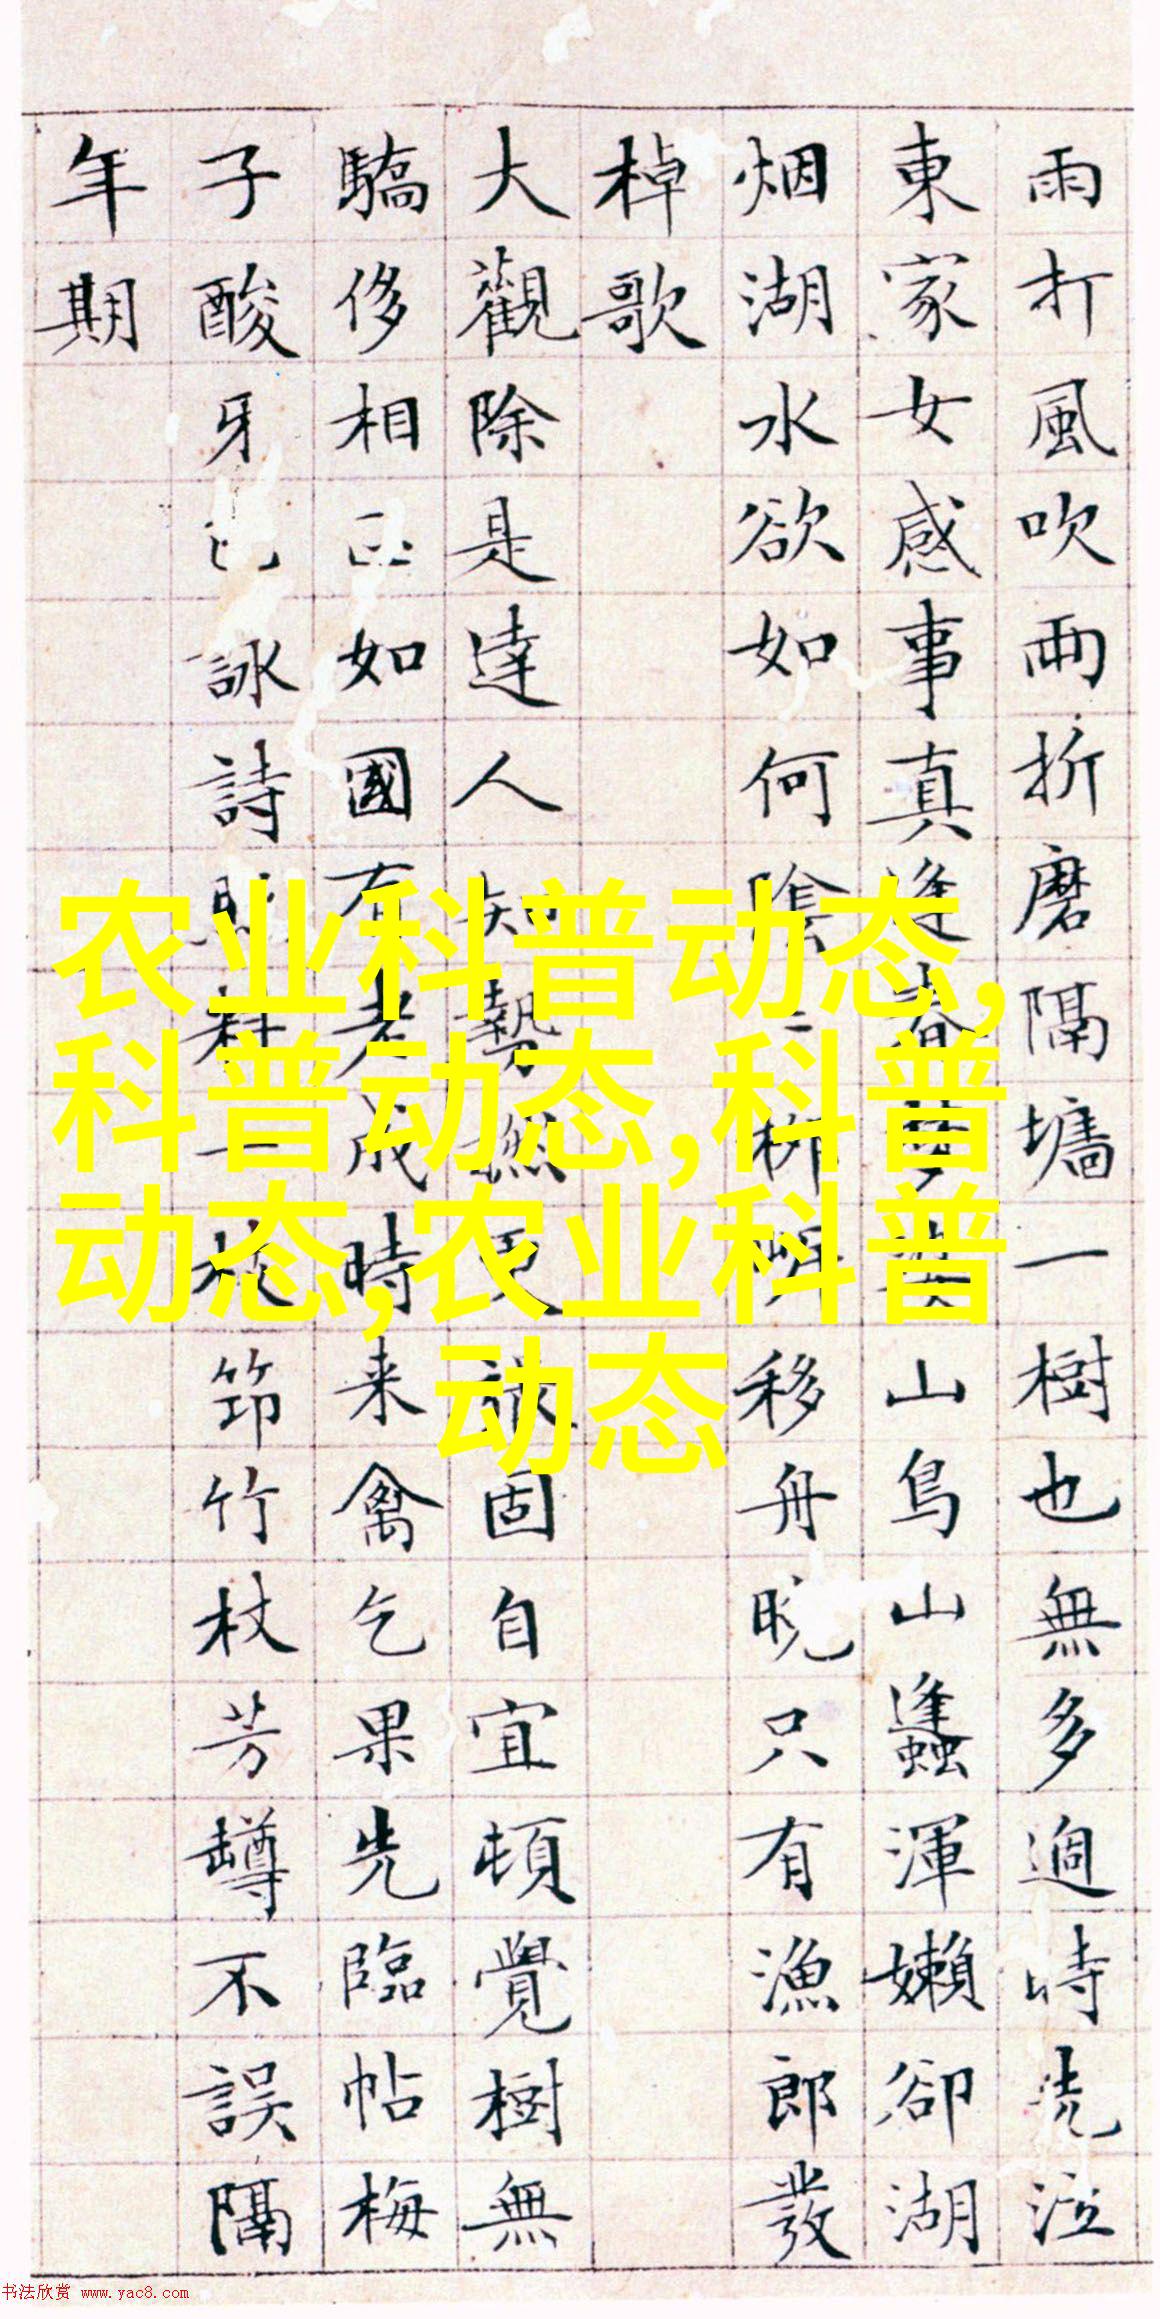 雨打風吹雨折磨隔墻一樹也無多過時
東家女感事真逢春山鳥山蠭渾嬾卻湖
烟湖水欲如何陰柳移舟晚只有漁郎發
棹歌
大觀除是達人知勢更固自宜頓覺樹無
驕侈相如國有老成時来禽乞果先臨帖梅
子酸牙詠詩村一枝筇竹杖芳罇不誤隔
年期
农业科普动态,
科普动态,科普
动态,农业科普
动态
书法欣赏 www.yac8.com